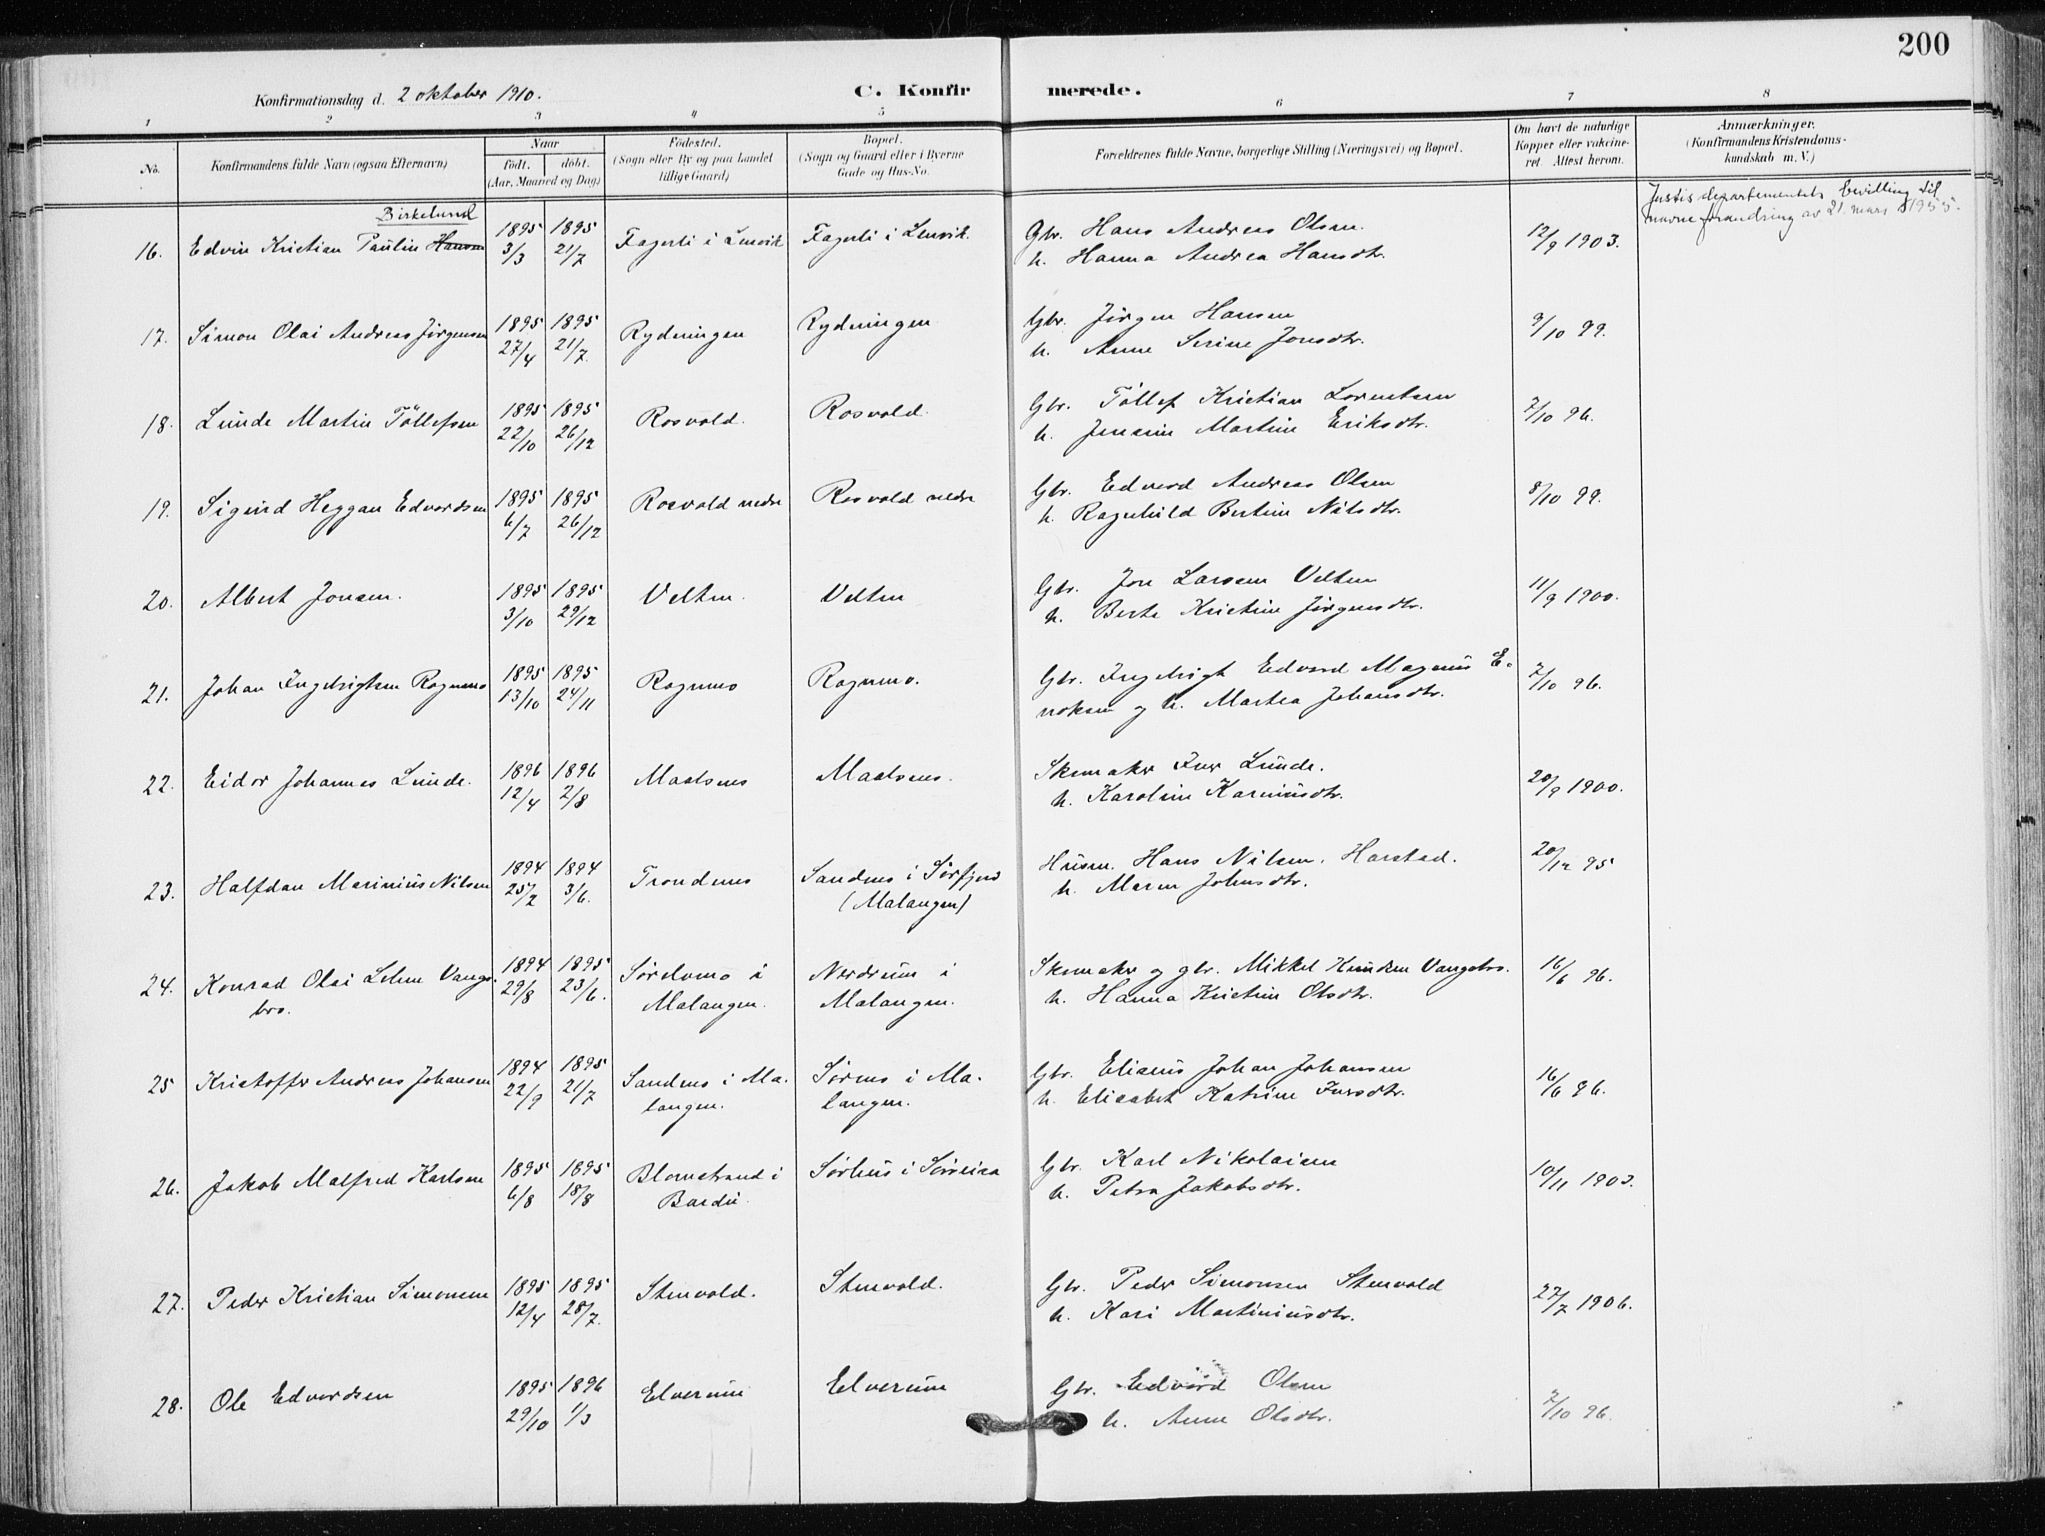 200
Konfirmationsdag d. 2 oktober 1910.
C. Konfirmerede.
1 2 3 4 5 6 7 8
No. | Konfirmandens fulde Navn (ogsaa Efternavn) | Naar født. døbt. (Aar, Maaned og Dag) | Fødested. (Sogn eller By og paa Landet tillige Gaard) | Bopæl. (Sogn og Gaard eller i Byerne Gade og Hus-No. | Forældrenes fulde Navne, borgerlige Stilling (Næringsvei) og Bopæl. | Om havt de naturlige Kopper eller vakcineret. Attest herom. | Anmærkninger. (Konfirmandens Kristendomskundskab m. V.)
Justisdepartementets bevilling til
navneforandring av 21. mars 1955.
Birkelund
16. Edvin Kristian Paulin Hansen | 1895 3/3 | 1895 21/7 | Fagerli i Lenvik | Fagerli i Lenvik | Gbr. Hans Andreas Olsen.
h. Hanna Andrea Hansdtr. | 12/9 1903.
17. Simon Olai Andreas Jørgensen | 1895 27/4 | 1895 21/7. | Rydningen | Rydningen | Gbr. Jørgen Hansen
h. Anne Serine Jonsdtr. | 9/10 99.
18. Lunde Martin Tøllefsen | 1895 22/10 | 1895 26/12 | Rosvold. | Rosvold. | Gbr. Tøllef Kristian Lorentsen
h. Jensine Martine Eriksdtr. | 7/10 96.
19. Sigurd Heggan Edvardsen | 1895 6/7 | 1895 26/12 | Rosvold nedre | Rosvold nedre | Gbr. Edvard Andreas Olsen
h. Ragnhild Bertine Nilsdtr. | 8/10 99.
20. Albert Jonsen. | 1895 3/10 | 1895 29/12 | Velten. | Velten | Gbr. Jon Larsen Velten
h. Berte Kristine Jørgensdtr. | 11/9 1900.
21. Johan Ingebrigtsen Rognmo | 1895 13/10 | 1895 24/11 | Rognmo | Rognmo. | Gbr. Ingebrigt Edvard Magnus E-
noksen og h. Martea Johansdtr. | 7/10 96.
22. Eidor Johannes Lunde. | 1896 12/4 | 1896 2/8 | Maalsnes | Maalsnes. | Skomaker Iver Lunde.
h. Karoline Kareliusdtr. | 20/9 1900.
23. Halfdan Marinius Nilsen | 1894 25/2 | 1894 3/6. | Trondenes | Sandnes i Sørfjord
(Malangen) | Husm. Hans Nilsen. Harstad.
h. Maren Johnsdtr. | 20/12 95
24. Konrad Olai Lehn Vangs-
bro. | 1894 29/8 | 1895 23/6. | Sørelvmo i
Malangen. | Nordrum i
Malangen. | Skomaker og gbr. Mikkel Knudsen Vangsbro.
h. Hanna Kristine Olsdtr. | 16/6 96.
25 Kristoffer Andreas Johansen | 1894 22/9 | 1895 21/7 | Sandnes i Ma-
langen. | Sørnes i Ma-
langen. | Gbr. Eliseus Johan Johansen
h. Elisabet Katrine Iversdtr. | 16/6 96.
26. Jakob Malfred Karlsen | 1895 6/8 | 1895 18/8 | Blomstrand i
Bardu. | Sørhus i Sørreisa | Gbr. Karl Nikolaisen
h. Petra Jakobsdtr. | 10/11 1903.
27. Peder Kristian Simonsen | 1895 12/4 | 1895 28/7. | Stenvold. | Stenvold. | Gbr. Peder Simonsen Stenvold
h. Kari Martiniusdtr. | 27/7 1906.
28. Ole Edvardsen | 1895 29/10 | 1896 1/3 | Elverum | Elverum | Gbr. Edvard Olsen
h. Anne Olsdtr. | 7/10 96.